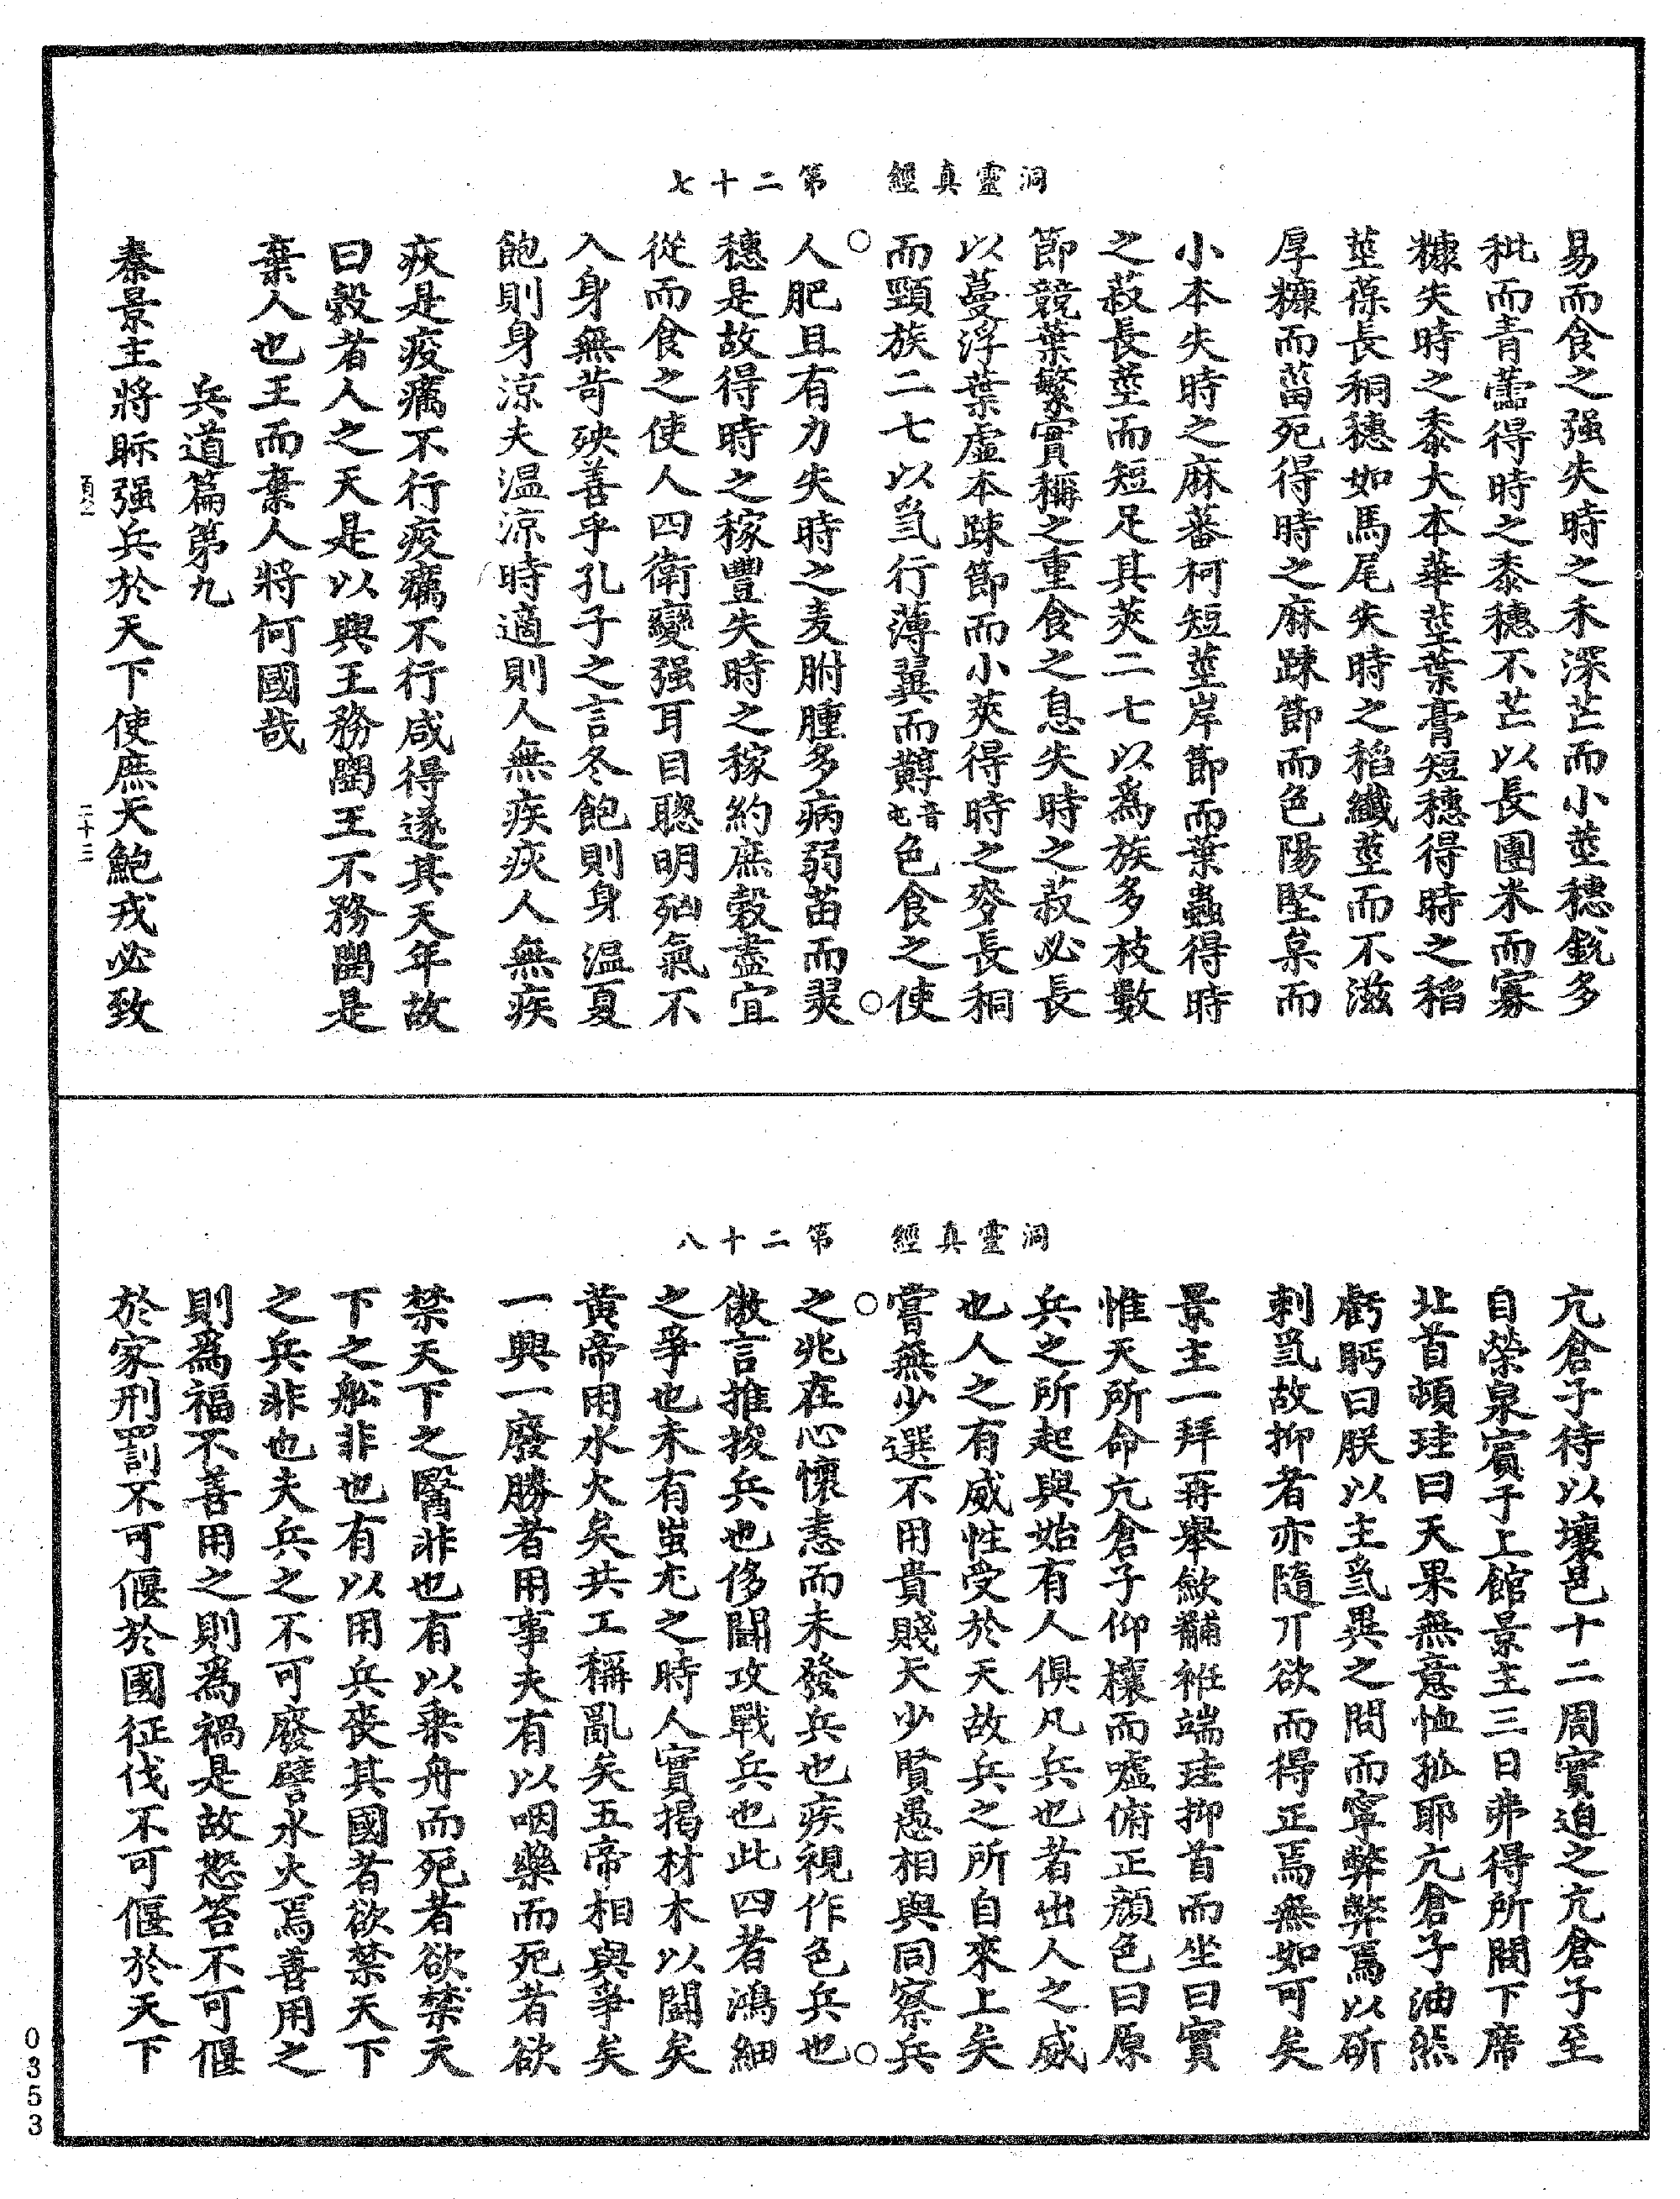 洞靈真經　第二十七
易而食之强失時之禾深芒而小莖穗銳多
秕而青蘦得時之黍穗不芒以長團米而寡
糠失時之黍大本華莖葉膏短穗得時之稻
莖葆長秱穗如馬尾失時之稻纖莖而不滋
厚糠而菑死得時之麻踈節而色陽堅枲而
小本失時之麻蕃柯短莖岸節而葉蟲得時
之菽長莖而短足其莢二七以爲族多枝數
節競葉繁實稱之重食之息失時之菽必長
以蔓浮葉虛本踈節而小莢得時之麥長秱
而頸族二七以爲行薄翼而䵍音屯色食之使
人肥且有力失時之麦胕腫多病弱苗而翜
穗是故得時之稼豐失時之稼約庶穀盡宜
從而食之使人四衛變强耳目聰明㓙氣不
入身無苛殃善乎孔子之言冬飽則身温夏
飽則身凉夫温凉時適則人無疾疢人無疾
疢是疫癘不行疫癘不行咸得遂其天年故
曰穀者人之天是以興王務農王不務農是
棄人也王而棄人將何國哉
兵道篇第九
秦景主將眎强兵於天下使庶夭鮑戎必致
二十三
洞靈真經　第二十八
亢倉子待以壤邑十二周實迫之亢倉子至
自榮泉賓于上館景主三日弗得所問下席
北首頓珪曰天果無意恤孤耶亢倉子油然
虧眄曰朕以主爲異之問而寧弊弊焉以斫
刺爲故抑者亦隨丌欲而得正焉無如可矣
景主一拜再舉斂黼衽端珪抑首而坐曰實
惟天所命亢倉子仰榱而噓俯正顏色曰原
兵之所起與始有人俱凡兵也者出人之威
也人之有威性受於天故兵之所自來上矣
嘗無少選不用貴賤夭少賢愚相與同察兵
之兆在心懷恚而未發兵也疾視作色兵也
傲言推捘兵也侈鬭攻戰兵也此四者鴻細
之爭也未有蚩尤之時人實揭材木以鬭矣
黄帝用水火矣共工稱亂矣五帝相與爭矣
一興一廢勝者用事夫有以咽藥而死者欲
禁天下之醫非也有以乗舟而死者欲禁天
下之舩非也有以用兵喪其國者欲禁天下
之兵非也夫兵之不可廢譬水火焉善用之
則爲福不善用之則爲禍是故怒笞不可偃
於家刑罰不可偃於國征伐不可偃於天下
0353